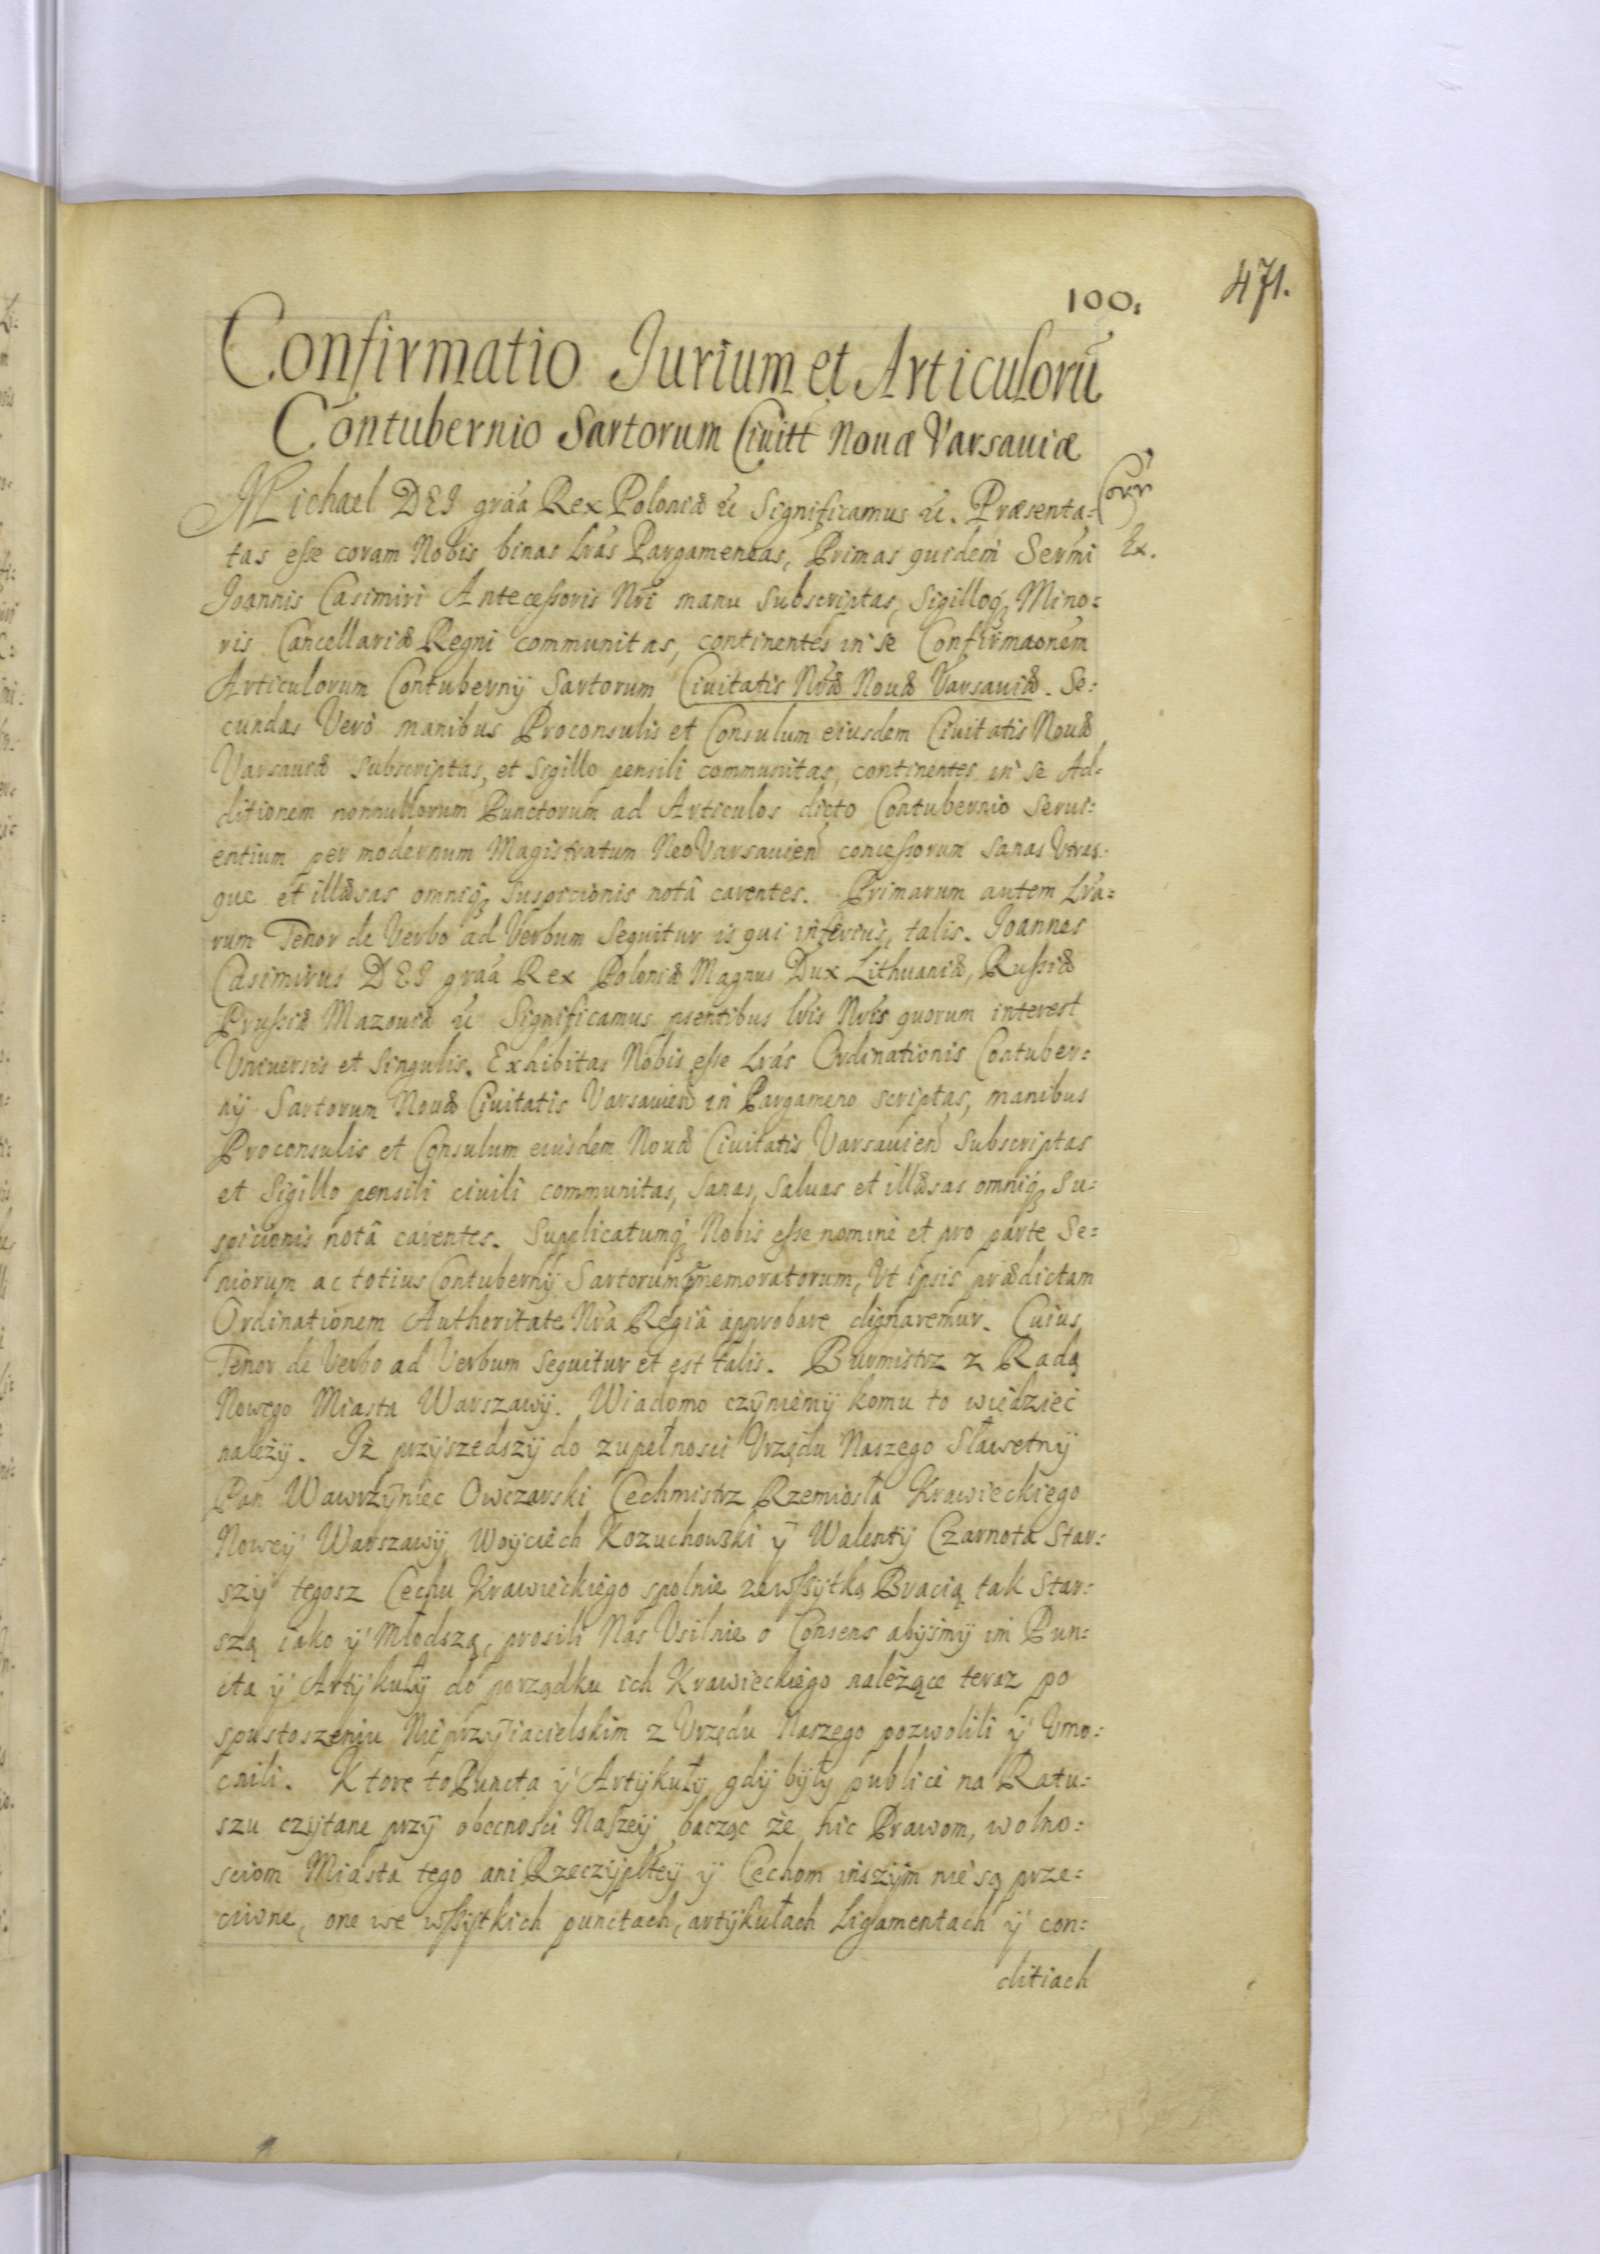 100.
471.
Confirmatio Jurium et Articulorũ
Contubernio Sartorum Ciuitt Nouæ Varsauiæ
Michael DEI grãa Rex Poloniæ &c Significamus &c. Præsenta=
Corr
tas esse coram Nobis binas Lrãs Pargameneas, Primas quidem Sermi
Ex.
Joannis Casimiri Antecessoris Nrĩ manu Subscriptas, Sigilloq; Mino=
ris Cancellariæ Regni communitas, continentes in se Confirmaonem
Articulorum Contubernij Sartorum Ciuitatis Nræ Nouæ Varsauiæ. Se=
cundas Verò manibus Proconsulis et Consulum eiusdem Ciuitatis Nouæ
Varsauiæ Subscriptas, et Sigillo pensili communitas, continentes in se Ad=
ditionem nonnullorum Punctorum ad Articulos dicto Contubernio Serui=
entium per modernum Magistratum NeoVarsauien concessorum Sanas Vtras=
que et illæsas omniq; Suspicionis notâ carentes. Primarum autem Lrã=
rum Tenor de Verbo ad Verbum Sequitur is qui inferius, talis. Joannes
Casimirus DEI grãa Rex Poloniæ Magnus Dux Lithuaniæ, Russiæ
Prussiæ Mazouiæ &c Significamus pñtibus Lris Nris quorum interest
Vniuersis et Singulis. Exhibitas Nobis esse Lrãs Ordinationis Contuber=
nij Sartorum Nouæ Ciuitatis Varsauien in Pargameno scriptas, manibus
Proconsulis et Consulum eiusdem Nouæ Ciuitatis Varsauien Subscriptas
et Sigillo pensili ciuili communitas, Sanas, Saluas et illæsas omniq; Su=
spicionis notâ carentes. Supplicatumq; Nobis esse nomine et pro parte Se=
niorum ac totius Contubernij Sartorum memoratorum, Vt ipsis prædictam
Ordinationem Authoritate Nra Regiâ approbare dignaremur. Cuius
Tenor de Verbo ad Verbum Sequitur et est talis. Burmistrz z Radą
Nowego Miasta Warszawy. Wiadomo czyniemy komu to wiedzieć
należy. Iż przyszedszy do zupełnosci Vrzędu Naszego Sławetny
Pan Wawrzyniec Owczarski Cechmistrz Rzemiosła Krawieckiego
Nowey Warszawy Woyciech Kozuchowski y Walenty Czarnota Star=
szy tegosz Cechu Krawieckiego spolnie zewssytką Bracią tak Star=
szą iako y Młodszą, prosili Nas Vsilnie o Consens abysmy im Pun=
cta y Artykuły do porządku ich Krawieckiego należące teraz po
spustoszeniu Nieprzyiacielskim z Vrzędu Naszego pozwolili y Vmo=
cnili. Ktore to Puncta y Artykuły gdy były publice na Ratu=
szu czytane przy obecnosci Naszey bacząc że nic Prawom, wolno=
sciom Miasta tego ani Rzeczypltey y Cechom inszym nie są prze=
ciwne, one we wssytkich punctach, artykułach Ligamentach y con=
ditiach